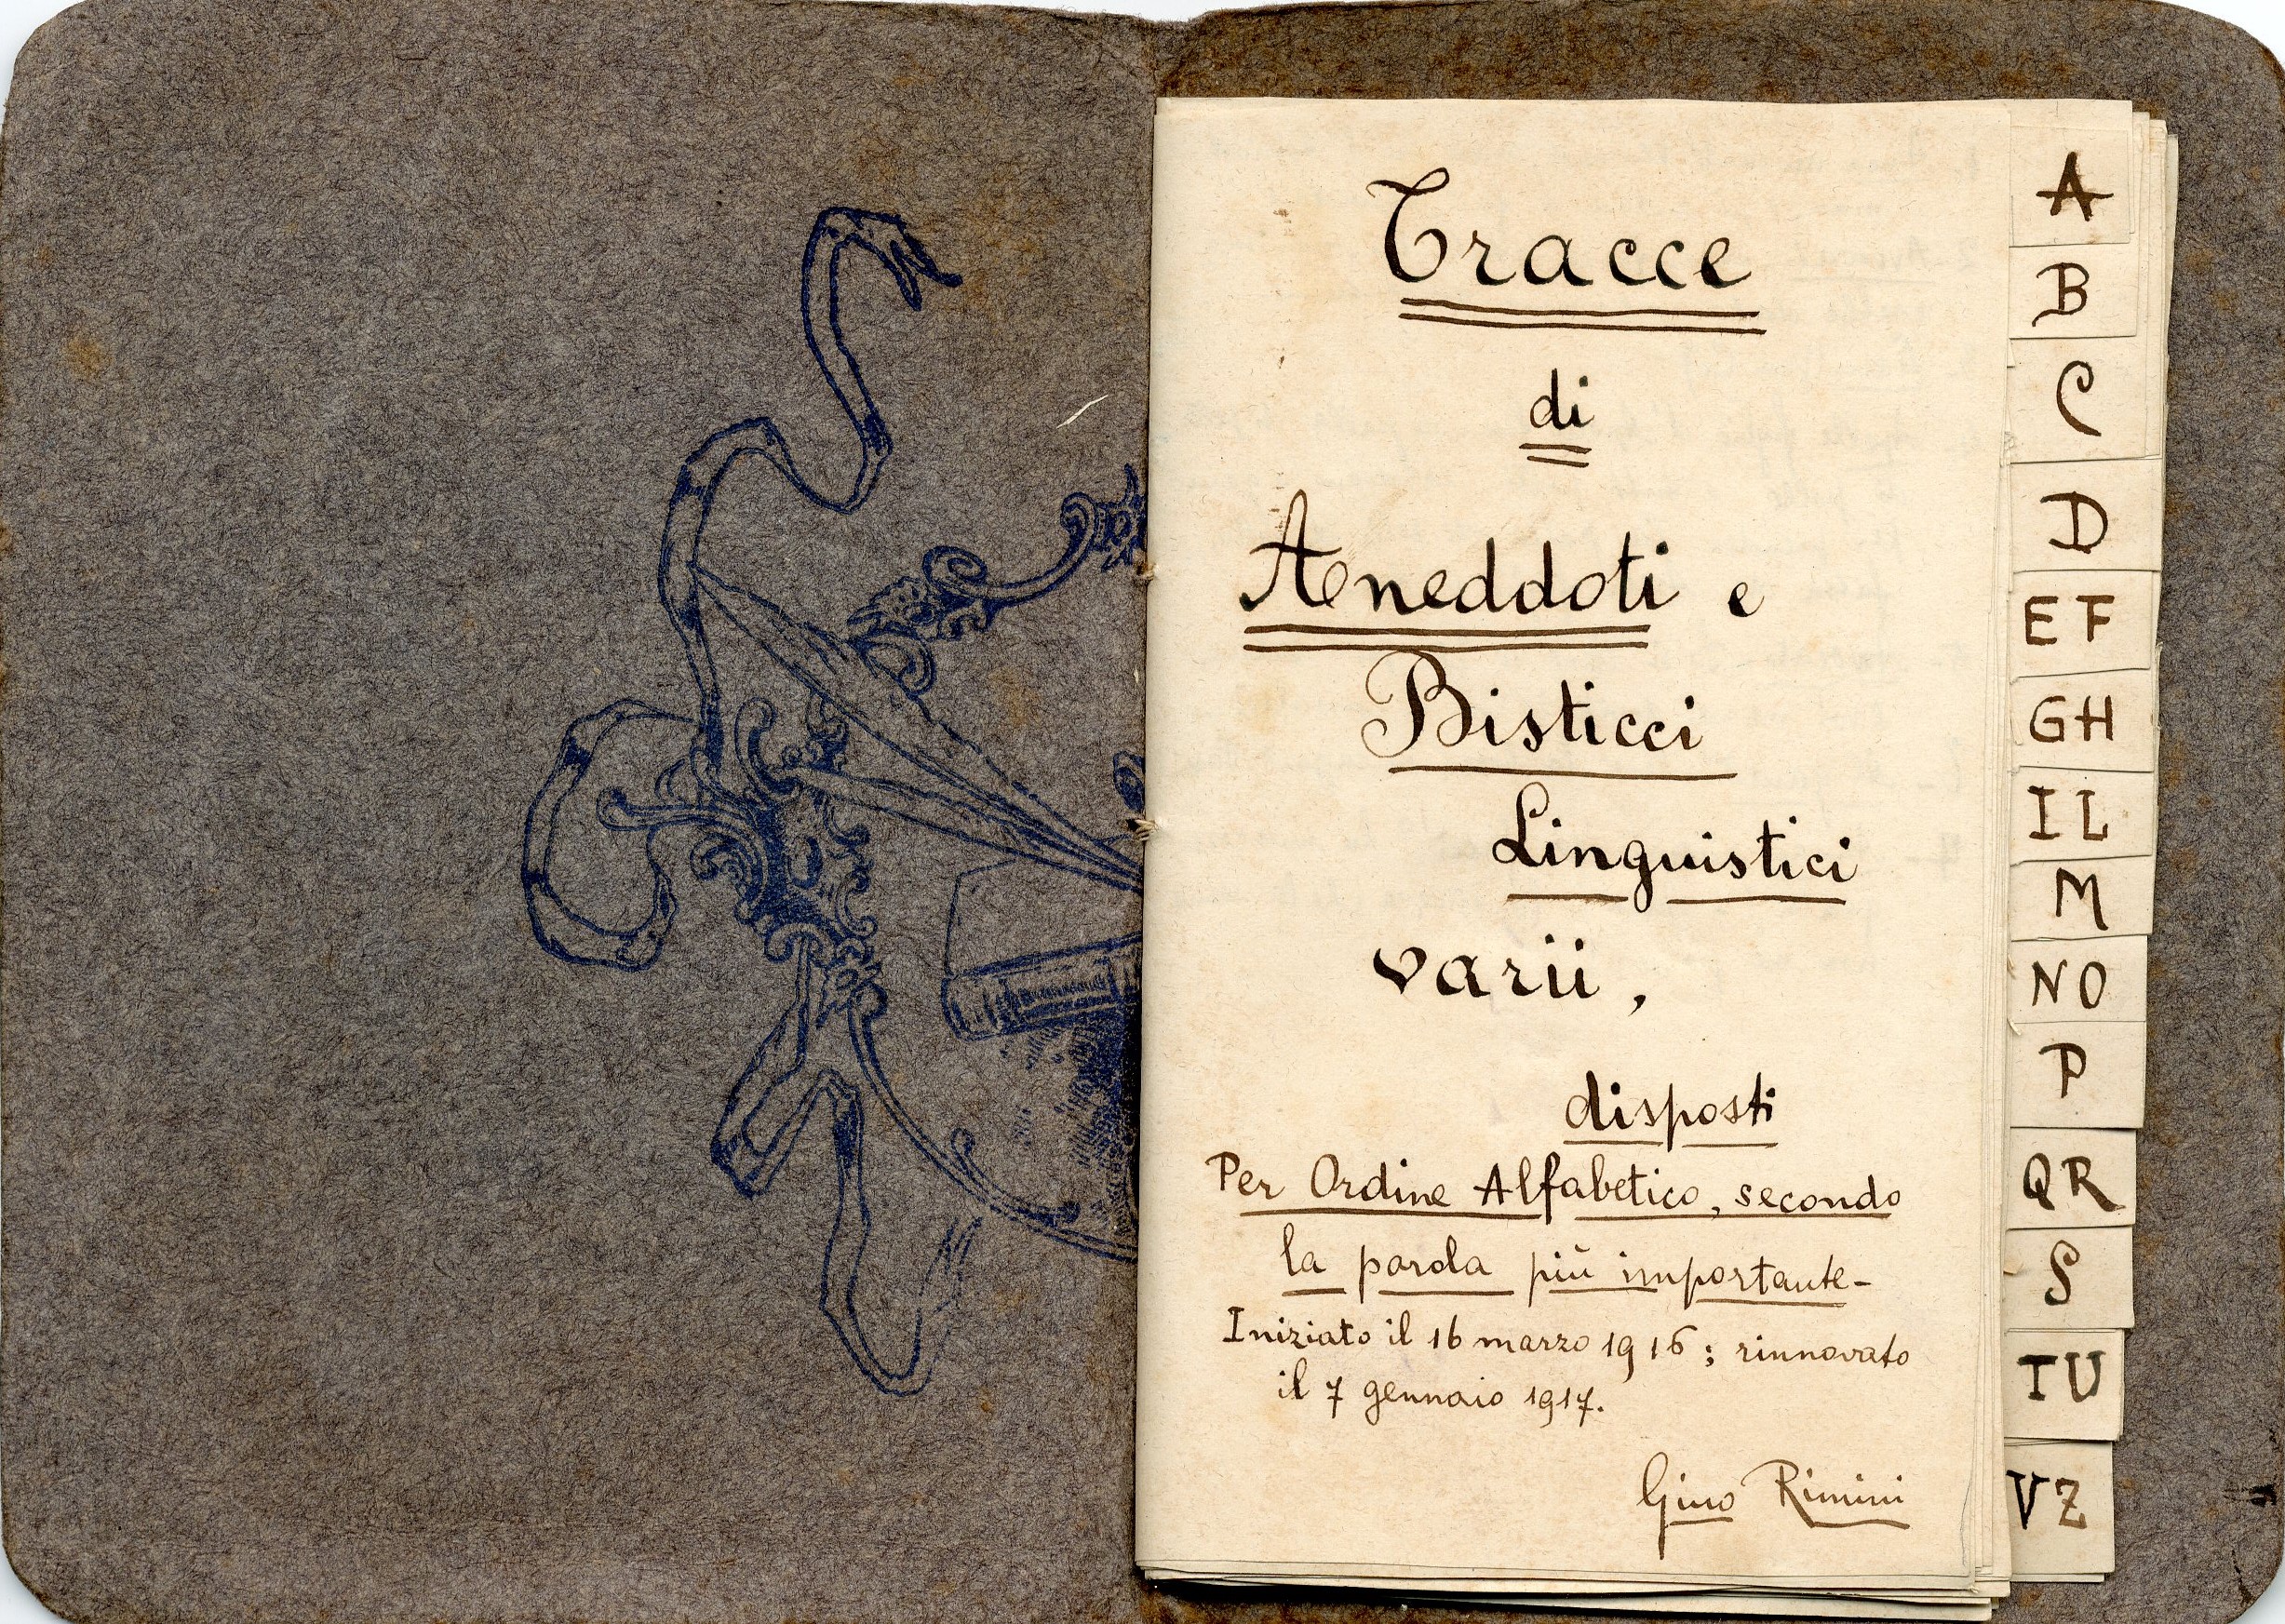 Tracce
di
Aneddoti e
Bisticci
Linguistici
varii,
disposti
Per Ordine Alfabetico, secondo
la parola più importante-
Iniziato il 16 marzo 1916; rinnovato
il 7 gennaio 1917.
Gino Rimini
A
B
C
D
EF
GH
IL
M
NO
P
QR
S
TU
VZ